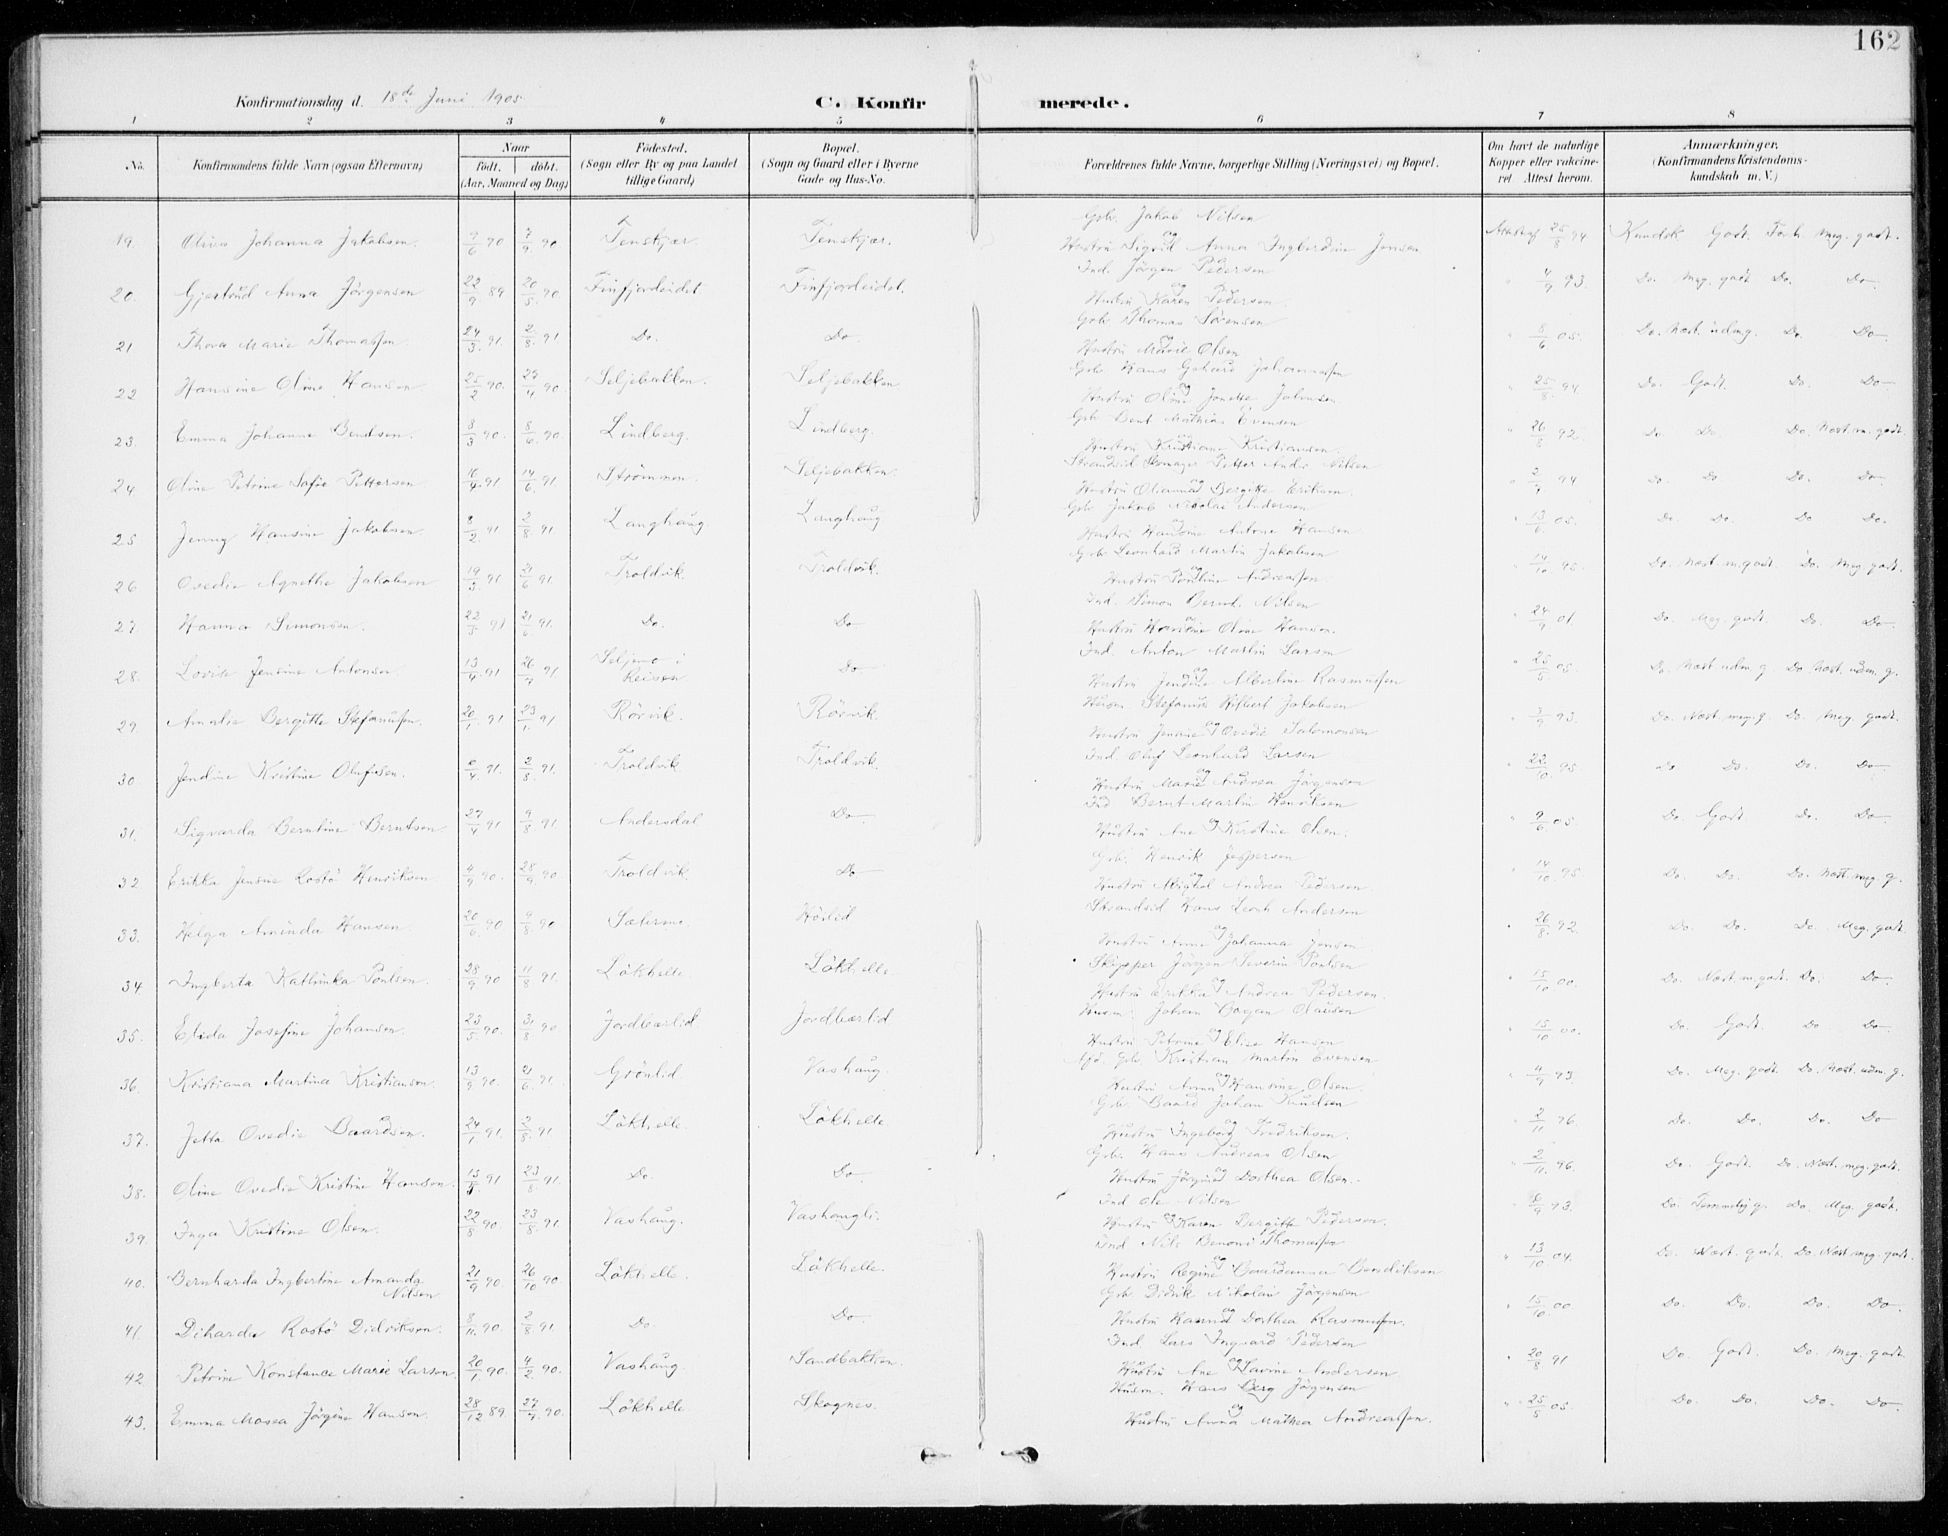 162
Konfirmationsdag d. 18de Juni 1905
C. Konfirmerede.
1 2 3 4 5 6 7 8
No. Konfirmandens fulde Navn (ogsaa Efternavn) Naar født. døbt. (Aar, Maaned og Dag) Fødested. (Sogn eller By og paa Landet tillige Gaard) Bopæl. (Sogn og Gaard eller i Byerne Gade og Hus-No. Forældrenes fulde Navne, borgerlige Stilling (Næringsvei) og Bopæl. Om havt de naturlige Kopper eller vaccineret. Attest herom. Anmærkninger. (Konfirmandens Kristendomskundskab m. V.)
Gbr. Jakob Nilsen
19. Johanna Jakobsen. 9/6 90 7/9 90 Tenskjær. Tenskjær. Hustru Sigrid og Anna Ingberdine Jensen 25/8 94 Kundsk Godt. Forh. Meg. godt.
Ind. Jörgen Pedersen
20. Gjertrud Anna Jörgensen 22/9 89 20/5 90 Finfjordeidet Finfjordeidet. Hustru Karen og Pedersen. " 4/9 93. Do. Meg. godt Do. Do.
Gbr Thomas Sörensen
21 Thora Marie Thomassen 24/3 91. 2/8 91 Do. Do. Hustru Marie og Olsen " 8/6 05. Do. Næst. udm.g. Do. Do.
Gbr. Hans Gerhard Johannessen
22 Hansine Oline Hansen 25/2 90. 27/4 90. Seljebakken. Seljebakken Hustru Oline og Jonette Johnsen. " 25/8 94. Do. Godt. Do. Do.
Gbr Bent Mathias Evensen
23. Emma Johanne Bentsen. 8/3 90. 8/6 90. Lindberg. Lindberg. Hustru Kristiane Kristiansen. " 26/8 92. Do Do. Do. Næst.m.godt.
Strandsid Skomager Petter Andr. Nilsen
24 Oline Petrine Sofie Pettersen 16/4 91 14/6 91 Strömmen. Seljebakken. Hustru og Bergitte Eriksen. " 94 Do. Do Do. Do.
Gbr Jakob Nikolai Andersen
25 Jenny Hansine Jakobsen 8/2 91 2/8 91. Langhaug Langhaug Hustru Hansine og Antone Hansen " 13/6 05. Do. Do. Do Do.
Gbr Leonhard Martin Jakobsen
26 Ovedie Agnethe Jakobsen 19/3 91 21/6 91. Troldvik. Troldvik. Hustru Pauline og Andreassen. " 14/10 95. Do. Næst.m.godt. Do. Meg. godt.
Ind. Simon Bernt. Nilsen
27. Hanna Simonsen. 22/5 91 21/6 91. Do. Do Hustru Hansine og Oline Hansen. " 24/9 01. Do. Meg. godt. Do. Do.
Ind. Anton Martin Larsen
28. Lovise Jensine Antonsen 13/4 91 26/7 91 Seljeno i Reisen Do Hustru Jendine og Albertine Rasmussen " 25/5 05. Do. Næst udm. g. Do Næst. udm. g.
Husm. Stefanus Hilbert Jakobsen
29. Amalie Bergitte Stefanussen. 20/1 91 23/1 91 Rörvik. Rörvik. Hustru og Ovedie Salomonsen " 3/9 93. Do. Næst. meg. g. Do. Meg. godt.
Ind Olaf Leonhard Larsen
30. Jendine Kristine Olufsen. 6/4 91. 2/8 91. Troldvik Troldvik. Hustru Marie og Andrea Jörgensen " 22/10 95. Do Do. Do. Do.
Ind Bernt Martin Henriksen
31. Sigvarda Berntine Berntsen 27/4 91 9/8 91. Andersdal Do Hustru Ane og Kirstine Olsen. " 9/6 05. Do. Godt. Do. Do.
Gbr. Henrik Jespersen
32. Erikka Jensine Rostö Henriksen 4/9 90. 28/9 90 Troldvik. Do Hustru og Andrea Pedersen. " 14/10 95. Do. Do. Do. Næst. meg. g.
Strandsid Hans Andersen
33. Helga Aminda Hansen 20/6 90 9/8 90 Sæterne. Hörlid Hustru Anne og Johanna Jensen " 26/8 92. Do. Do. Do. Meg. godt.
Skipper Jörgen Severin Poulsen
34. Ingberta Kathinka Poulsen. 28/9 90 11/8 91. Lökhelle. Lökhelle Hustru Erikka og Andrea Pedersen. " 15/10 00. Do. Næst.m.godt. Do. Do.
Husm. Johan Olausen
35. Elida Josefine Johansen. 23/5 90. 31/8 90 Jordbærlid Jordbærlid Hustru Petrine og Elise Hansen " 15/10 00. Do. Godt. Do Do.
Gbr. Kristian Martin Evensen
36. Kristiana Martina Kristiansen 13/9 90. 21/6 91. Grönlid Vashaug. Hustru Anna og Hansine Olsen. " 4/9 93. Do. Meg. godt. Do. Næst. udm. g.
Gbr. Baard Johan Knudsen
37. Jetta Ovedie Baardsen. 24/1 91. 2/8 91 Lökhelle. Lökhelle Hustru Ingeborg og Fredriksen. " 2/11 96. Do. Do. Do. Do
Gbr. Hans Andreas Olsen
38. Oline Ovedie Kristine Hansen. 15/3 91 23/8 91. Do. Do. Hustru Jörgine og Dorthea Olsen. " 2/11 96. Do. Godt. Do. Næst. meg. godt.
Ind Ole Nilsen
39. Inga Kristine Olsen. 22/8 90. 23/8 91. Vashaug. Vashaugli. Hustru og Karen Bergitte Pedersen. 93. Do. Temmelig g. Do. Meg. godt.
Ind Nils Benoni Thomassen
40. Bernharda Ingbertine Amanda Nilsen 21/9 90 26/10 90. Lökhelle. Lökhelle. Hustru Regine og Baardanna Bendiksen " 13/10 04. Do. Næst. godt. Do. Næst meg. godt.
Gbr Didrik Nikolai Jörgensen
41. Diharda Rostö Didriksen. 8/11 90. 2/8 91. Do. Do. Hustru og Dorthea Rasmussen. " 15/10 00 Do. Do. Do. Do.
Ind Lars Ingvard Pedersen
42. Petrine Konstance Marie Larsen. 20/1 90. 4/2 90. Vashaug. Sandbakken. Hustru Ane og Lavine Andersen " 20/8 91 Do. Godt. Do. Meg. godt
Husm. Hans Berg Jörgensen
43. Emma Mosea Jörgine Hansen. 28/12 89 27/7 90. Lökhelle Skognes. Hustru Anna og Mathea Andreassen. " 25/5 05. Do. Do. Do. Do.